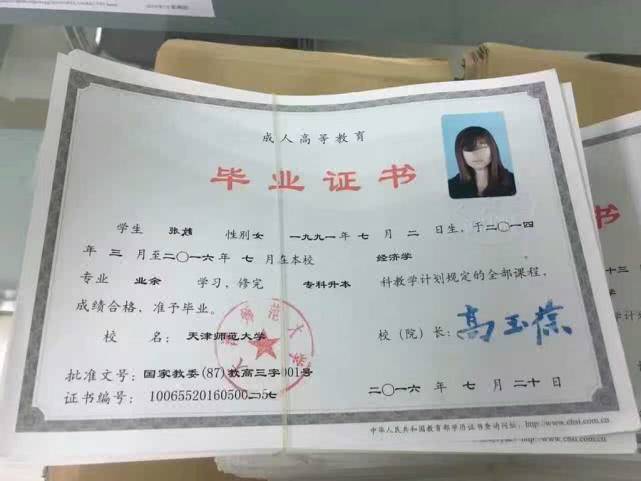 成人高等教育
毕业证书
学生 张婧 性别女 一九九一年 七 月 二 日生，于二〇一四
年 三 月至二〇一六年 七 月在本校 经济学
专业 业余 学习，修完 专科升本 科教学计划规定的全部课程，
成绩合格，准予毕业。
校 名： 天津师范大学 校（院）长： 高玉葆
批准文号：国家教委(87)教高三字001号
证书编号： 二〇一六 年 七 月 二十 日
中华人民共和国教育部学历证书查询网址：http://www.chsi.com.cn
http://www.chsi.com.cn